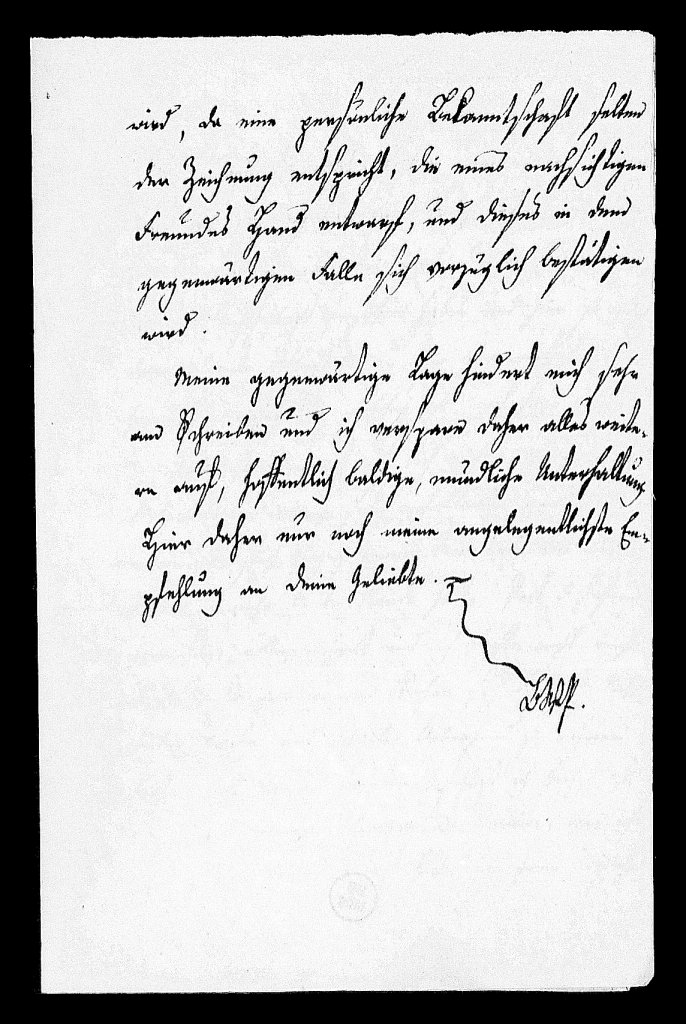 wird, da eine persönliche Bekanntschaft selten
der Zeichnung entspricht, die eines nachsichtigen
Freundes Hand entwarf, und dieses in dem
gegenwärtigen Falle sich vorzüglich bestätigen
wird.
Meine gegenwärtige Lage hindert mich sehr
am Schreiben und ich verspare daher alles weite-
re auf, hoffentlich baldige, mündliche Unterhaltung.
Hier daher nur noch meine angelegentlichste Em-
pfehlung an deine Geliebte.